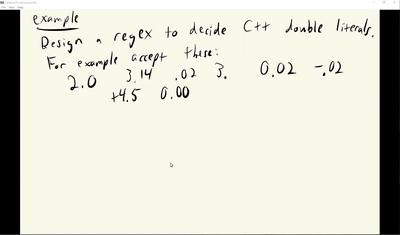 example
Design a regex to decide C++ double literals.
For example accept these:
2.0 3.14 .02 3. 0.02 -.02
+4.5 0.00